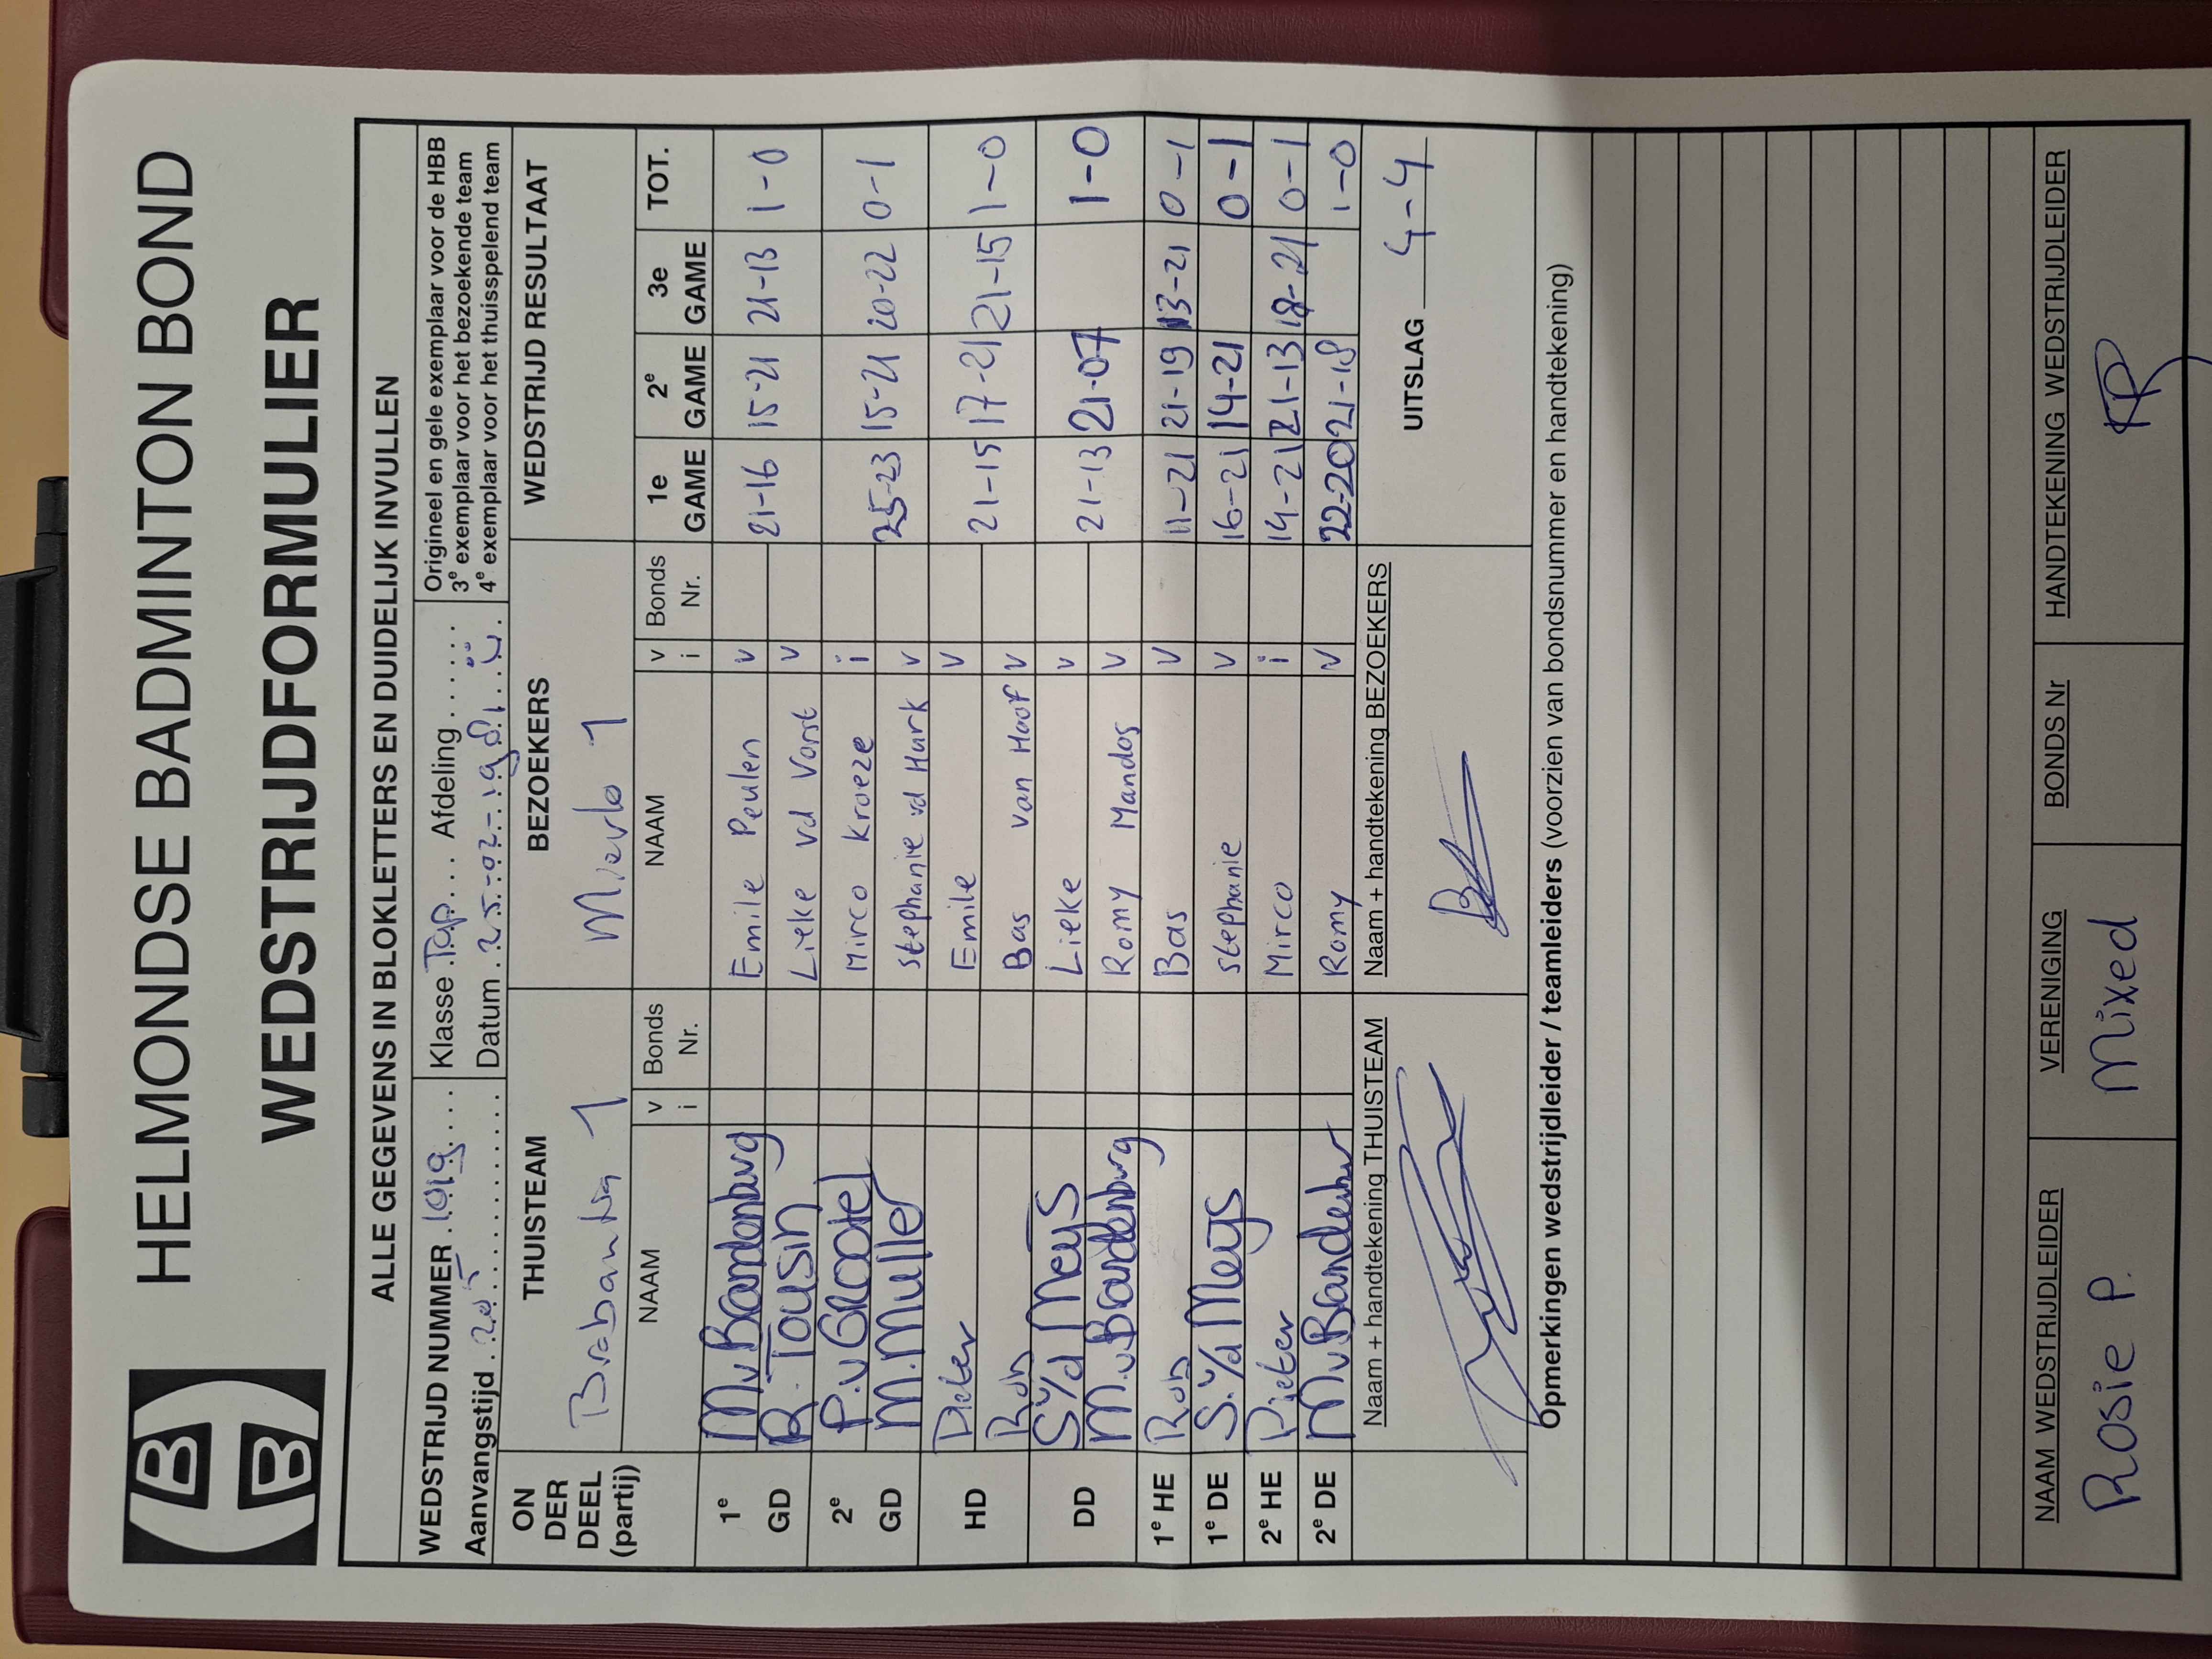 HELMONDSE BADMINTON BOND
WEDSTRIJDFORMULIER
ALLE GEGEVENS IN BLOKLETTERS EN DUIDELIJK INVULLEN
WEDSTRIJD NUMMER 1019 Klasse Top Afdeling Origineel en gele exemplaar voor de HBB
3e exemplaar voor het bezoekende team
Aanvangstijd Datum 25-02- 4e exemplaar voor het thuisspelend team
ON DER DEEL (partij) THUISTEAM BEZOEKERS WEDSTRIJD RESULTAAT
Brabantia 1 Mierlo 1
NAAM v i Bonds Nr. NAAM v i Bonds Nr. 1e GAME 2e GAME 3e GAME TOT.
1e M.v Brandenburg Emile Peulen v 21-16 15-21 21-13 1-0
GD R. Tousin Lieke vd Vorst v
2e P.v Grootel Mirco Kroeze i 25-23 15-21 20-22 0-1
GD M. Muller Stephanie vd Hurk v
HD Pieter Emile v 21-15 17-21 21-15 1-0
Ron Bas van Hoof v
DD S v/d Meijs Lieke v 21-13 21-07 1-0
M.v Brandenburg Romy Mandos v
1e HE Ron Bas v 11-21 21-19 13-21 0-1
1e DE S. v/d Meijs Stephanie v 16-21 14-21 0-1
2e HE Pieter Mirco i 14-21 21-13 18-21 0-1
2e DE M v Romy v 22-20 21-18 1-0
Naam + handtekening THUISTEAM Naam + handtekening BEZOEKERS UITSLAG 4-4
Opmerkingen wedstrijdleider / teamleiders (voorzien van bondsnummer en handtekening)
NAAM WEDSTRIJDLEIDER VERENIGING BONDS Nr HANDTEKENING WEDSTRIJDLEIDER
Rosie P. Mixed